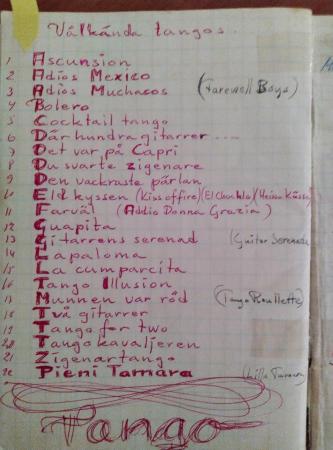 Välkända tangos.
1 Ascunsion
2 Adios Mexico
3 Adios Muchacos (Farewell Boys)
4 Bolero
5 Cocktail tango
6 Där hundra gitarrer ....
7 Det var på Capri
8 Du svarte zigenare
9 Den vackraste pärlan
10 Eld kyssen (Kiss of fire) (El Choclo)
11 Farväl (Addio Donna Grazia)
12 Guapita
13 Gitarrens serenad (Guitar Serenade
14 La paloma
15 La cumparcita
16 Tango Illusion
17 Munnen var röd (Tango Roullette)
18 Två gitarrer
19 Tango for two
20 Tangokavaljeren
21 Zigenartango
22 Pieni Tamara
Tango